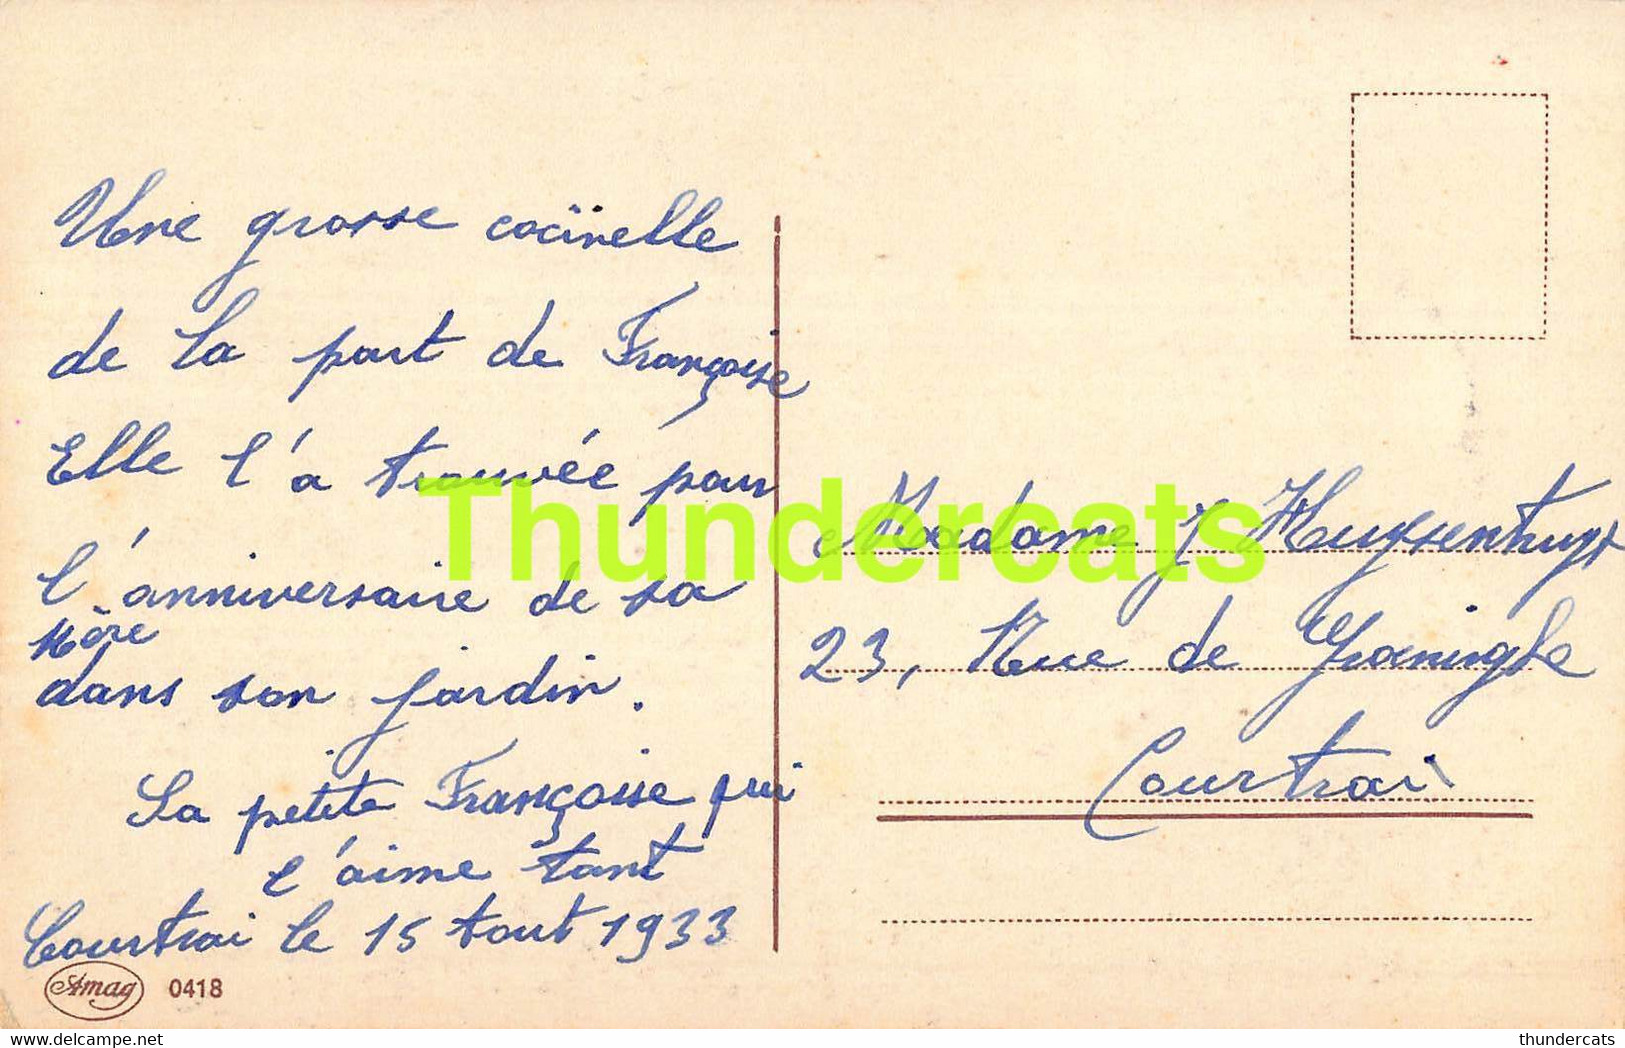 Une grosse cocïnelle
de la part de Françoise
Elle l'a trouvée pour
l'anniversaire de sa
Mère
dans son jardin.
Sa petite Françoise qui
l'aime tant
Courtrai le 15 tout 1933
Amag 0418
Madame J
23, Rue de
Courtrai
Thundercats
www.delcampe.net
thundercats